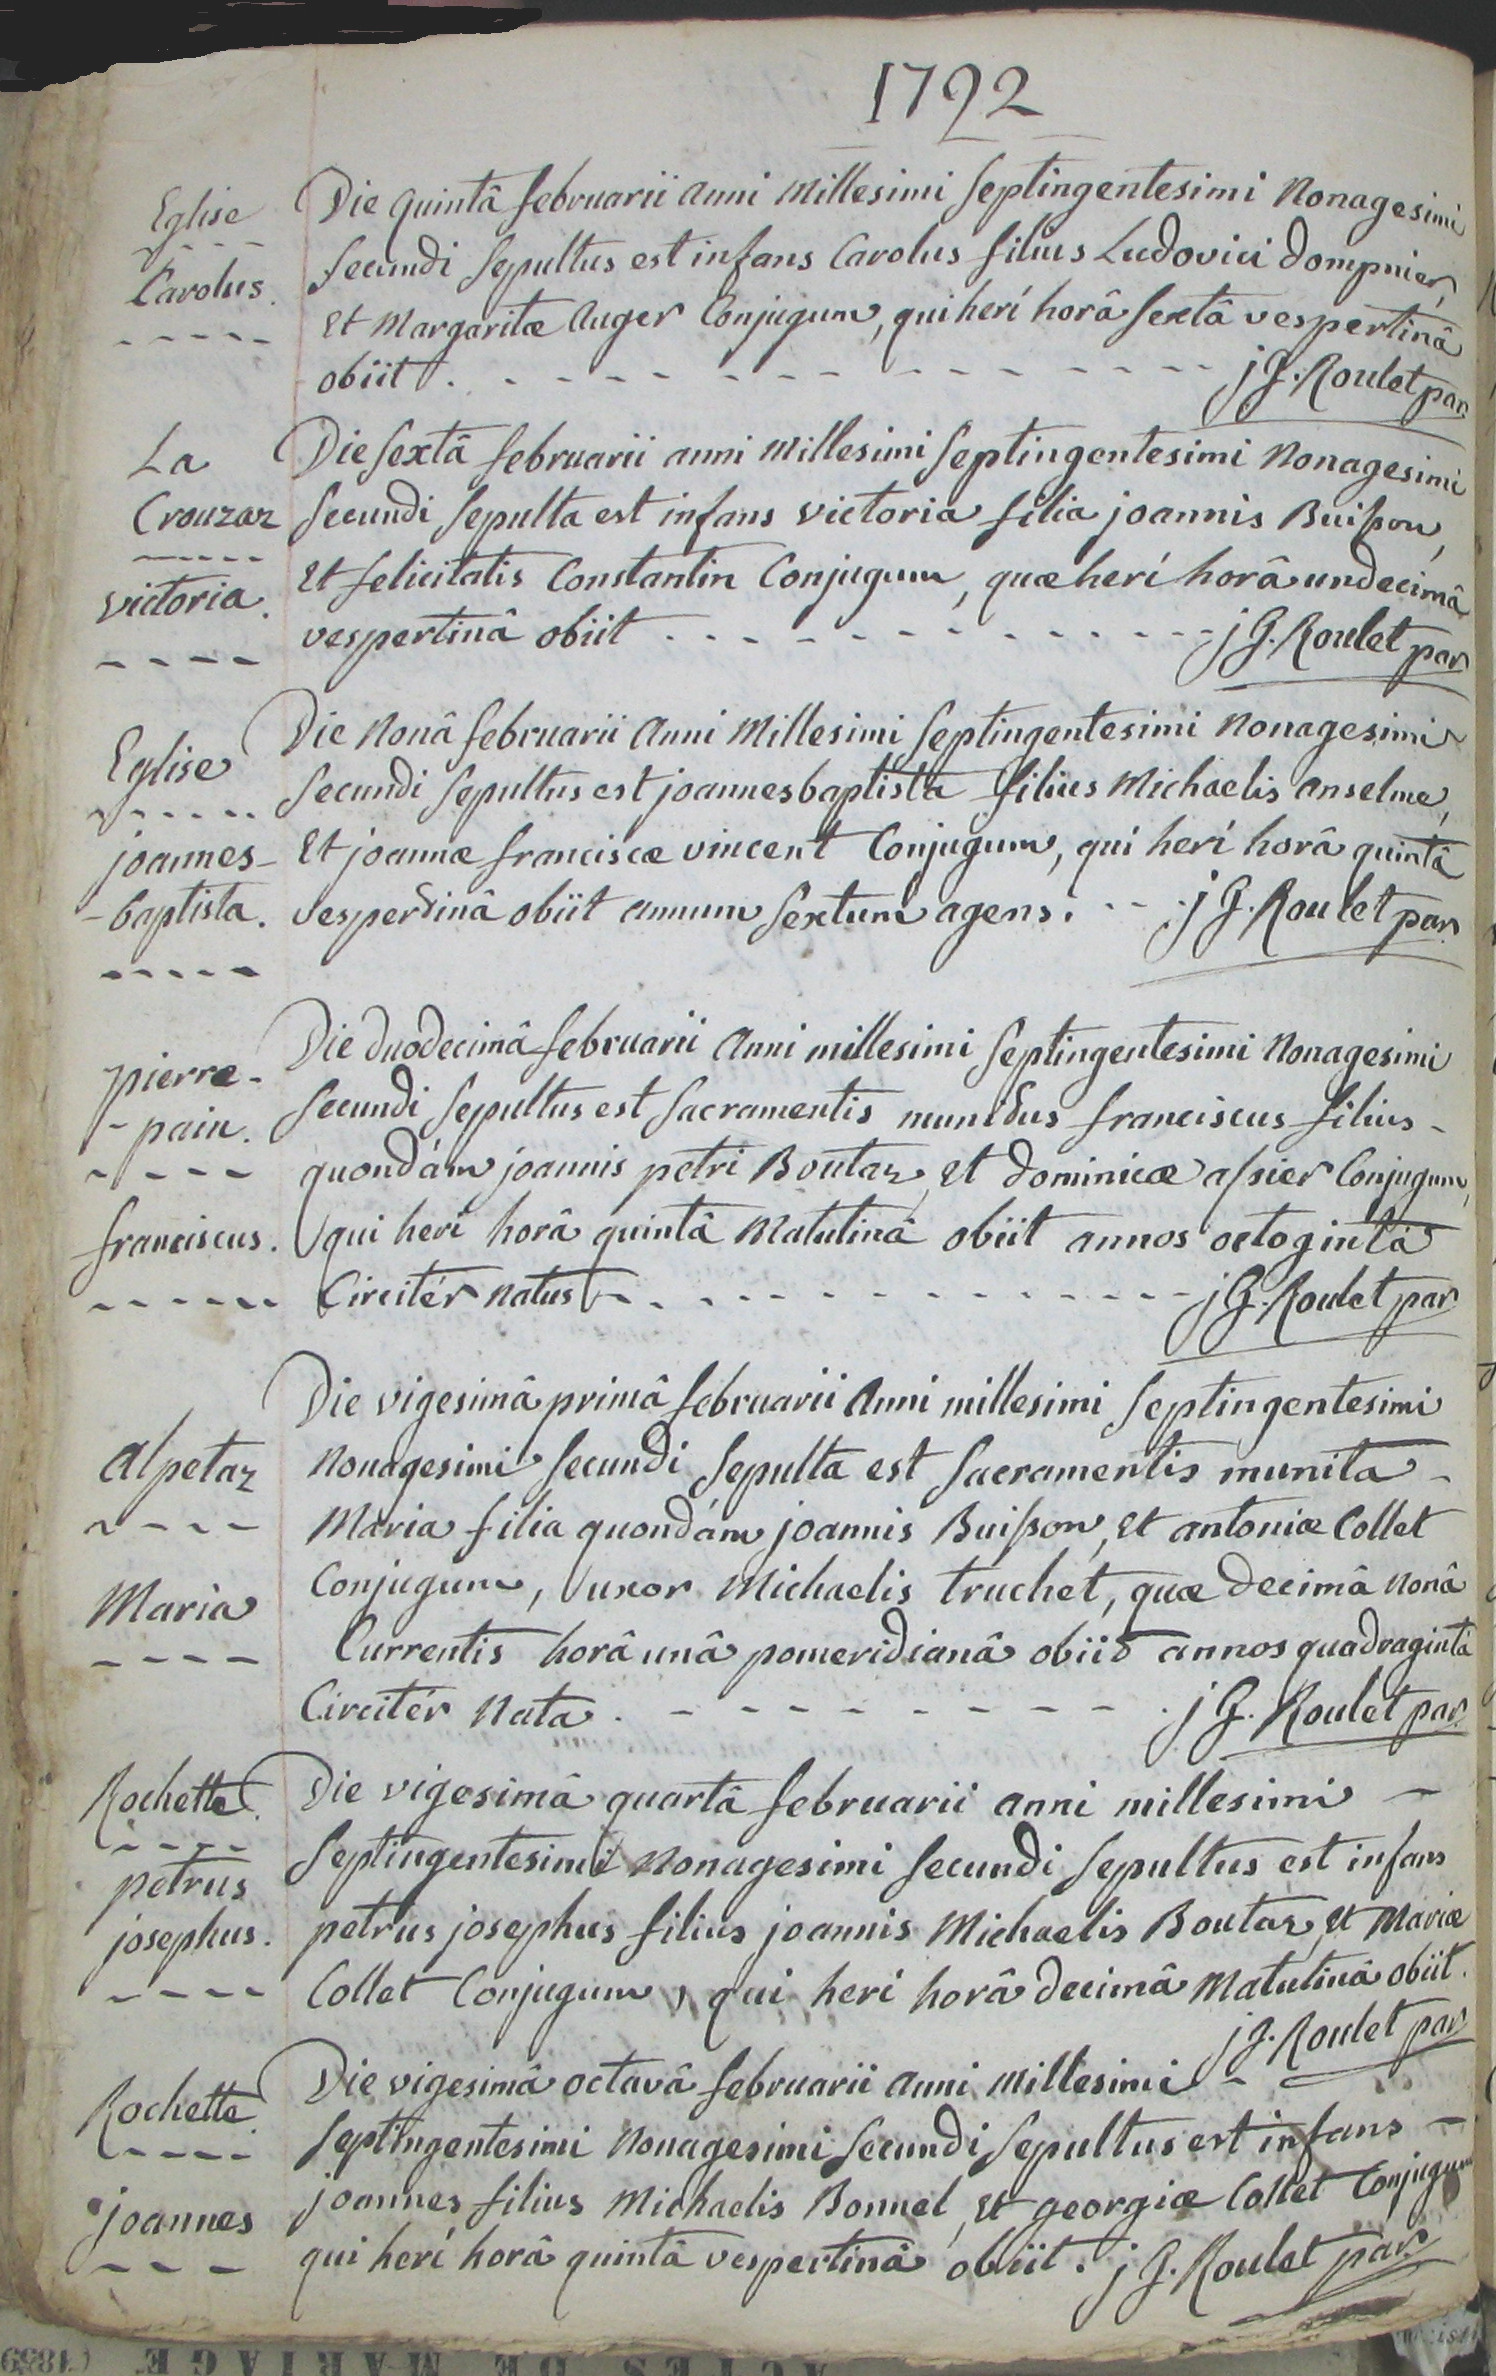 1792
Eglise
Carolus.
Die quintâ februarii anni Millesimi Septingentesimi Nonagesimi
secundi sepultus est infans Carolus filius Ludovici Dompnier,
Et Margaritæ Auger Conjugum, qui heri horâ sextâ vespertinâ
obiit. j G. Roulet par
La
Crouzaz
victoria.
Die sextâ februarii anni Millesimi Septingentesimi Nonagesimi
Secundi Sepulta est infans victoria filia joannis Buisson,
Et felicitatis Constantin Conjugum, quæ heri horâ undecimâ
vespertinâ obiit . j G. Roulet par
Eglise
joannes-
-baptista.
Die Nonâ februarii Anni Millesimi Septingentesimi Nonagesimi
Secundi Sepultus est joannesbaptista filius Michaelis Anselme,
Et joannæ franciscæ vincent Conjugum, qui heri horâ quintâ
vespertinâ obiit annum Sextum agens. j G. Roulet par
pierre-
-pain.
franciscus.
Die duodecimâ februarii Anni millesimi Septingentesimi Nonagesimi
Secundi Sepultus est Sacramentis munitus franciscus filius -
quondám joannis petri Boutaz, Et dominicæ assier Conjugum,
qui heri horâ quintâ Matutinâ obiit annos octogintâ
Circitér Natus j G. Roulet par
Alpetaz
Maria
Die vigesimâ primâ februarii Anni millesimi Septingentesimi
Nonagesimi Secundi Sepulta est Sacramentis munita -
Maria filia quondám joannis Buisson, Et antoniæ Collet
Conjugum, uxor Michaelis truchet, quæ decimâ Nonâ
Currentis horâ unâ pomeridianâ obiit annos quadragintâ
Circitér Nata. j G. Roulet par
Rochette.
petrus
josephus.
Die vigesimâ quartâ februarii anni millesimi -
Septingentesimi Nonagesimi Secundi Sepultus est infans
petrus josephus filius joannis Michaelis Boutaz, Et Mariæ
Collet Conjugum, qui heri horâ decimâ Matutinâ obiit.
j G. Roulet par
Rochette.
joannes
Die vigesimâ octavâ februarii Anni Millesimi -
Septingentesimi Nonagesimi Secundi Sepultus est infans -
joannes filius Michaelis Bonnel, Et georgiæ Collet Conjugum
qui heri horâ quintâ vespertinâ obiit. j G. Roulet par
ACTES DE MARIAGE (1859